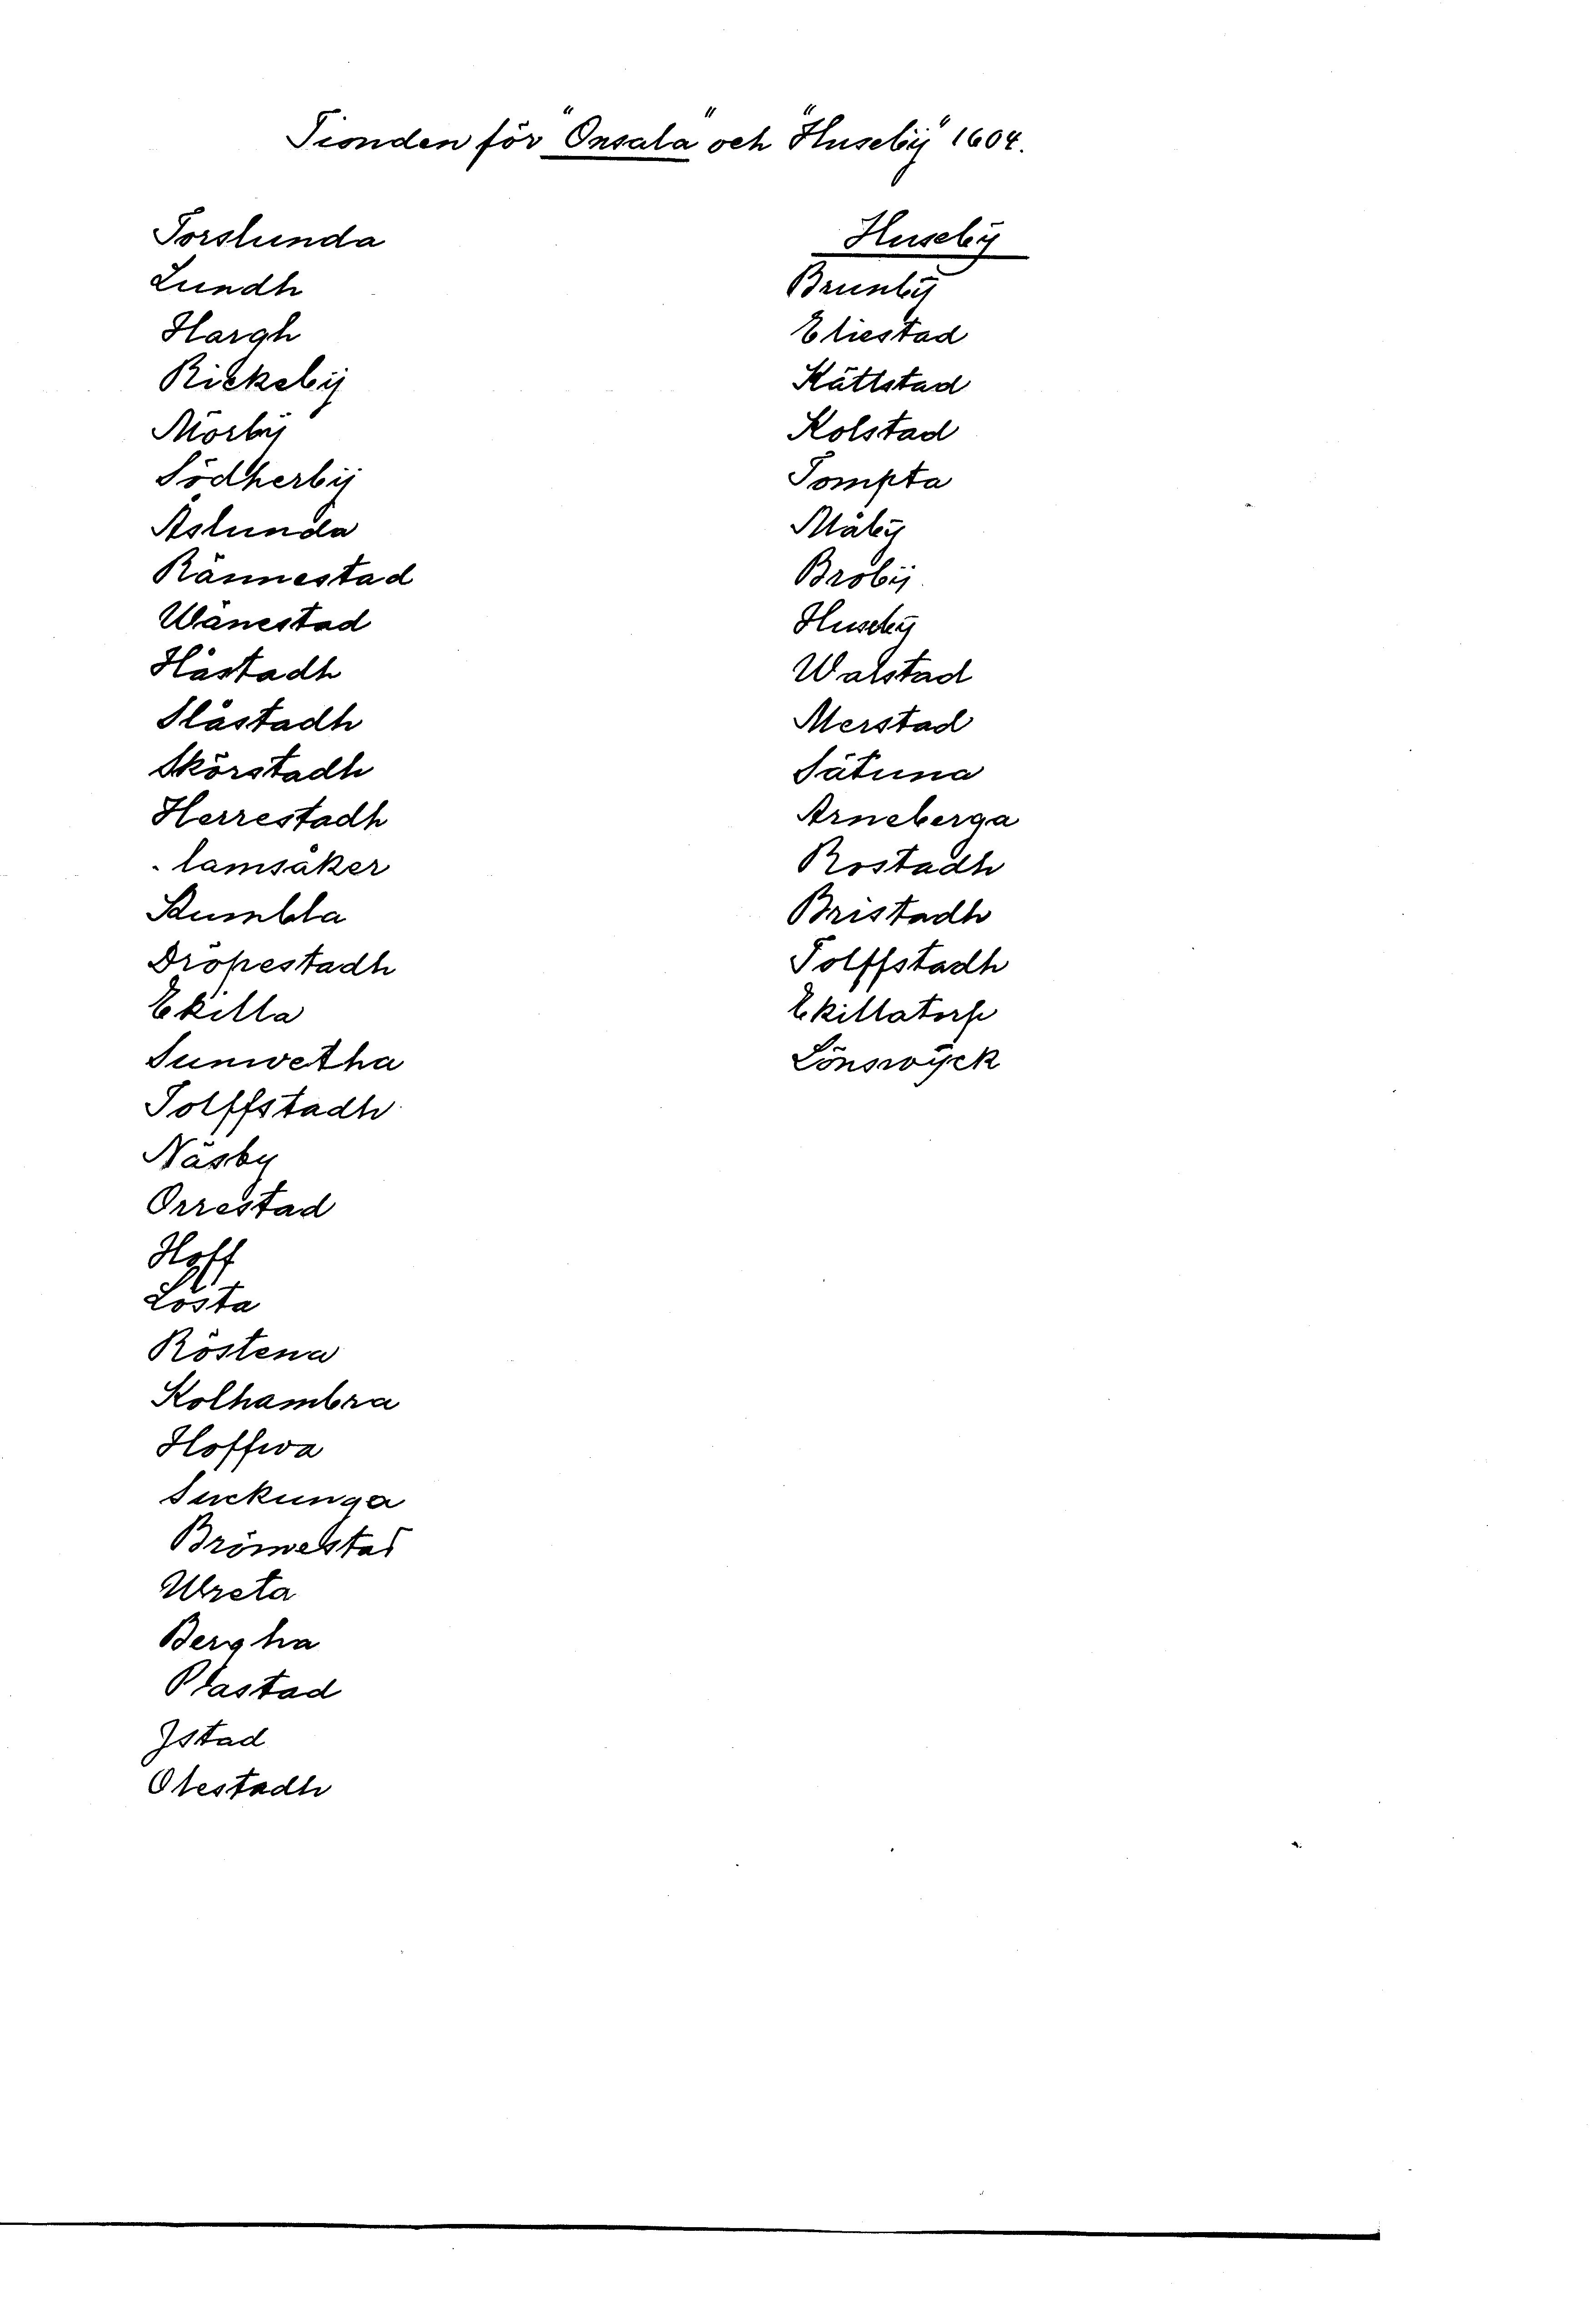 Tionden för "Onsala" och "Husebÿ" 1604.
Torslunda
Lundh
Hargh
Rickebÿ
Mörbÿ
Södherbÿ
Åslunda
Rännestad
Wänestad
Håstadh
Slåstadh
Skörstadh
Herrestadh
lamsåker
Kumbla
Dröpestadh
Ekilla
Sunwetha
Tolffstadh
Näsby
Orrestad
Hoff
Lösta
Röstena
Kolhambra
Hoffwa
Suckunga
Brönnestad
Wreta
Bergha
Plastad
Istad
Olestadh
Husebÿ
Brunbÿ
Eliestad
Kättstad
Kolstad
Tompta
Måbÿ
Brobÿ
Husebÿ
Walstad
Merstad
Sätuna
Arneberga
Rostadh
Bristadh
Tolffstadh
Ekillatorp
Lönswÿck